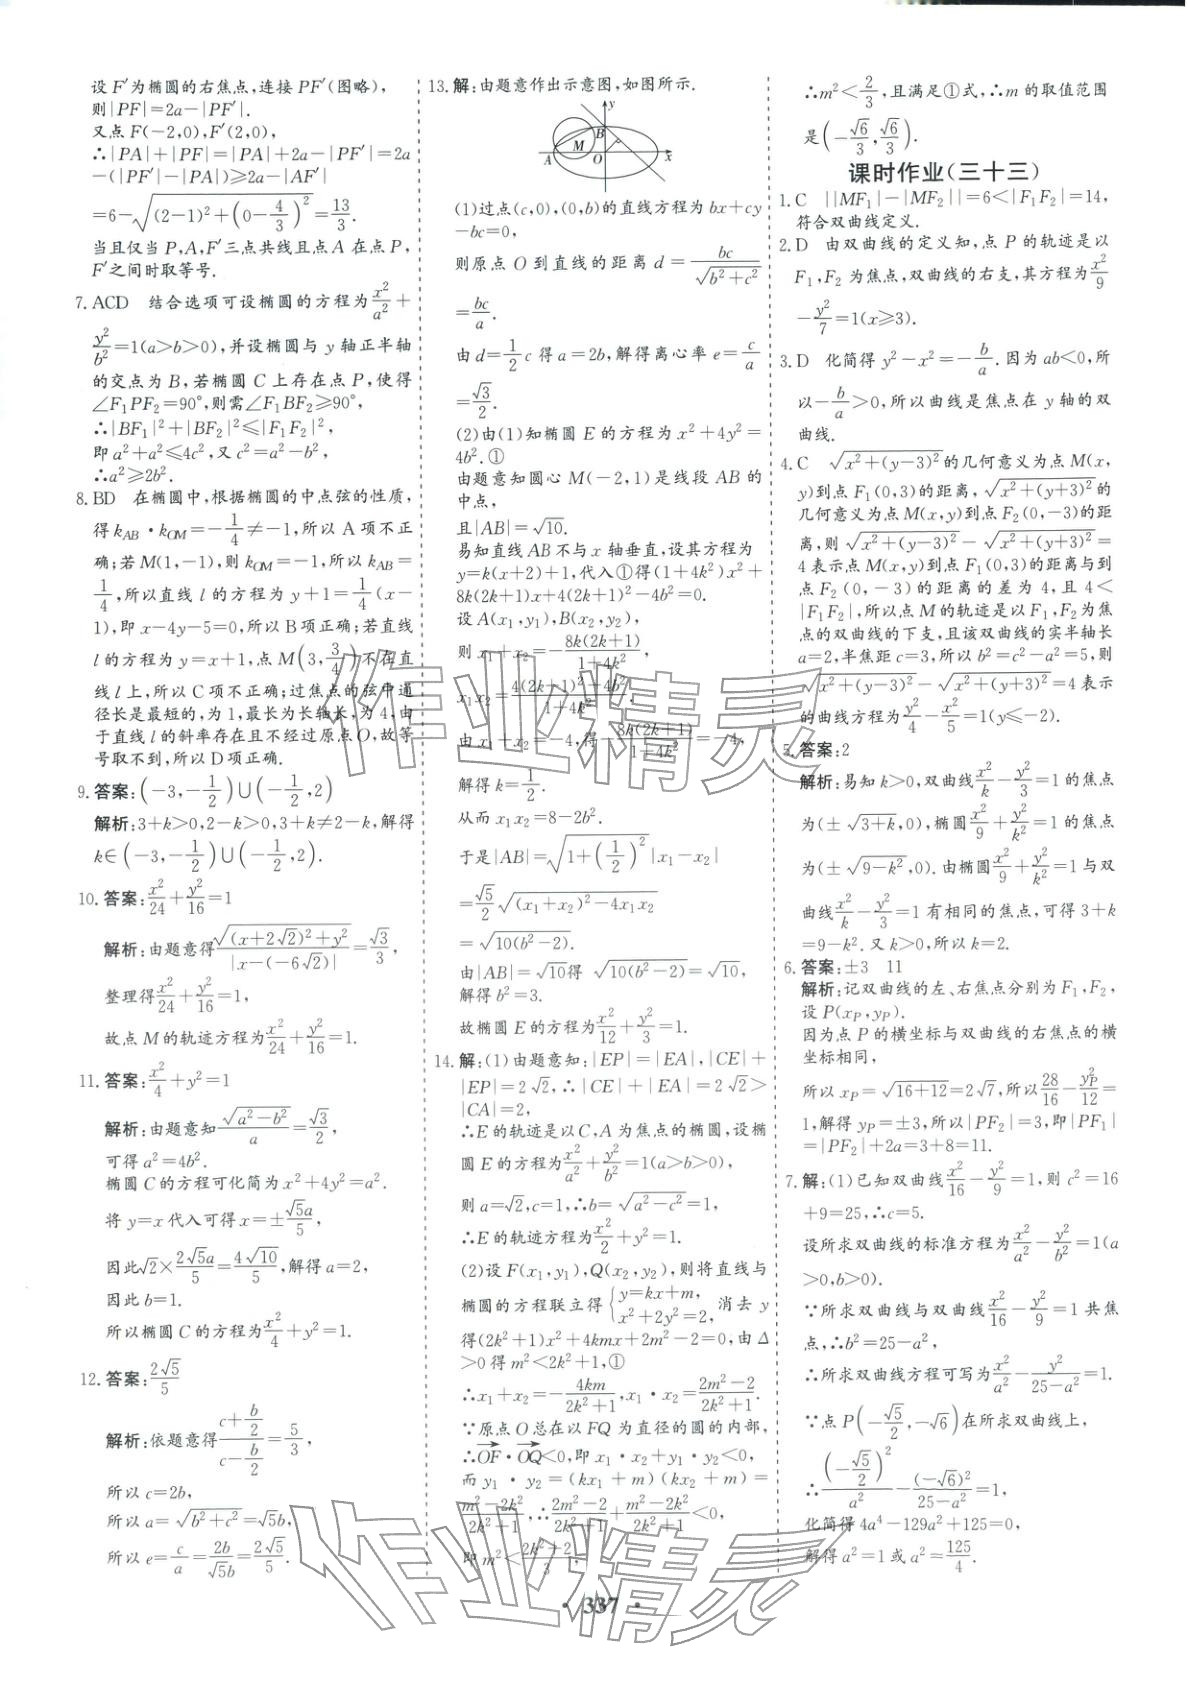 设 F′为椭圆的右焦点,连接 PF′(图略),
则|PF|=2a-|PF′|.
又点 F(-2,0),F′(2,0),
∴|PA|+|PF|=|PA|+2a-|PF′|=2a
-(|PF′|-|PA|)≥2a-|AF′|
=6-√((2-1)²+(0-4/3)²)=13/3.
当且仅当 P,A,F′三点共线且点 A 在点 P,
F′之间时取等号.
7. ACD 结合选项可设椭圆的方程为x²/a²+
y²/b²=1(a>b>0),并设椭圆与 y 轴正半轴
的交点为 B,若椭圆 C 上存在点 P,使得
∠F₁PF₂=90°,则需∠F₁BF₂≥90°,
∴|BF₁|²+|BF₂|²≤|F₁F₂|²,
即 a²+a²≤4c²,又 c²=a²-b²,
∴a²≥2b².
8. BD 在椭圆中,根据椭圆的中点弦的性质,
得 k_AB·k_OM=-1/4≠-1,所以 A 项不正
确;若 M(1,-1),则 k_OM=-1,所以 k_AB=
1/4,所以直线 l 的方程为 y+1=1/4(x-
1),即 x-4y-5=0,所以 B 项正确;若直线
l 的方程为 y=x+1,点 M(3,3/4)不在直
线 l 上,所以 C 项不正确;过焦点的弦中通
径长是最短的,为 1,最长为长轴长,为 4,由
于直线 l 的斜率存在且不经过原点 O,故等
号取不到,所以 D 项正确.
9. 答案:(-3,-1/2)∪(-1/2,2)
解析:3+k>0,2-k>0,3+k≠2-k,解得
k∈(-3,-1/2)∪(-1/2,2).
10. 答案:x²/24+y²/16=1
解析:由题意得√((x+2√2)²+y²)/|x-(-6√2)|=√3/3,
整理得x²/24+y²/16=1,
故点 M 的轨迹方程为x²/24+y²/16=1.
11. 答案:x²/4+y²=1
解析:由题意知√(a²-b²)/a=√3/2,
可得 a²=4b².
椭圆 C 的方程可化简为 x²+4y²=a².
将 y=x 代入可得 x=±√5a/5,
因此√2×2√5a/5=4√10/5,解得 a=2,
因此 b=1.
所以椭圆 C 的方程为x²/4+y²=1.
12. 答案:2√5/5
解析:依题意得(c+b/2)/(c-b/2)=5/3,
所以 c=2b,
所以 a=√(b²+c²)=√5b,
所以 e=c/a=2b/√5b=2√5/5.
13. 解:由题意作出示意图,如图所示.
y
B
M
A
O
x
(1)过点(c,0),(0,b)的直线方程为 bx+cy
-bc=0,
则原点 O 到直线的距离 d=bc/√(b²+c²)
=bc/a.
由 d=1/2c 得 a=2b,解得离心率 e=c/a
=√3/2.
(2)由(1)知椭圆 E 的方程为 x²+4y²=
4b².①
由题意知圆心 M(-2,1)是线段 AB 的
中点,
且|AB|=√10.
易知直线 AB 不与 x 轴垂直,设其方程为
y=k(x+2)+1,代入①得(1+4k²)x²+
8k(2k+1)x+4(2k+1)²-4b²=0.
设 A(x₁,y₁),B(x₂,y₂),
则 x₁+x₂=-8k(2k+1)/(1+4k²),
x₁x₂=(4(2k+1)²-4b²)/(1+4k²).
由 x₁+x₂=-4,得-8k(2k+1)/(1+4k²)=-4,
解得 k=1/2.
从而 x₁x₂=8-2b².
于是|AB|=√(1+(1/2)²)|x₁-x₂|
=√5/2√((x₁+x₂)²-4x₁x₂)
=√(10(b²-2)).
由|AB|=√10得 √(10(b²-2))=√10,
解得 b²=3.
故椭圆 E 的方程为x²/12+y²/3=1.
14. 解:(1)由题意知:|EP|=|EA|,|CE|+
|EP|=2√2,∴|CE|+|EA|=2√2>
|CA|=2,
∴E 的轨迹是以 C,A 为焦点的椭圆,设椭
圆 E 的方程为x²/a²+y²/b²=1(a>b>0),
则 a=√2,c=1,∴b=√(a²-c²)=1,
∴E 的轨迹方程为x²/2+y²=1.
(2)设 F(x₁,y₁),Q(x₂,y₂),则将直线与
椭圆的方程联立得{y=kx+m, x²+2y²=2, 消去 y
得(2k²+1)x²+4kmx+2m²-2=0,由 Δ
>0 得 m²<2k²+1,①
∴x₁+x₂=-4km/(2k²+1),x₁·x₂=(2m²-2)/(2k²+1).
∵原点 O 总在以 FQ 为直径的圆的内部,
∴OF·OQ<0,即 x₁·x₂+y₁·y₂<0,
而 y₁·y₂=(kx₁+m)(kx₂+m)=
(m²-2k²)/(2k²+1),∴(2m²-2)/(2k²+1)+(m²-2k²)/(2k²+1)<0,
即 m²<(2k²+2)/3,
∴m²<2/3,且满足①式,∴m 的取值范围
是(-√6/3,√6/3).
课时作业(三十三)
1. C ||MF₁|-|MF₂||=6<|F₁F₂|=14,
符合双曲线定义.
2. D 由双曲线的定义知,点 P 的轨迹是以
F₁,F₂ 为焦点,双曲线的右支,其方程为x²/9
-y²/7=1(x≥3).
3. D 化简得 y²-x²=-b/a.因为 ab<0,所
以-b/a>0,所以曲线是焦点在 y 轴的双
曲线.
4. C √(x²+(y-3)²)的几何意义为点 M(x,
y)到点 F₁(0,3)的距离,√(x²+(y+3)²)的
几何意义为点 M(x,y)到点 F₂(0,-3)的距
离,则 √(x²+(y-3)²)-√(x²+(y+3)²)=
4 表示点 M(x,y)到点 F₁(0,3)的距离与到
点 F₂(0,-3)的距离的差为 4,且 4<
|F₁F₂|,所以点 M 的轨迹是以 F₁,F₂为焦
点的双曲线的下支,且该双曲线的实半轴长
a=2,半焦距 c=3,所以 b²=c²-a²=5,则
√(x²+(y-3)²)-√(x²+(y+3)²)=4 表示
的曲线方程为y²/4-x²/5=1(y≤-2).
5. 答案:2
解析:易知 k>0,双曲线x²/k-y²/3=1 的焦点
为(±√(3+k),0),椭圆x²/9+y²/k²=1 的焦点
为(±√(9-k²),0).由椭圆x²/9+y²/k²=1 与双
曲线x²/k-y²/3=1 有相同的焦点,可得 3+k
=9-k².又 k>0,所以 k=2.
6. 答案:±3 11
解析:记双曲线的左、右焦点分别为 F₁,F₂,
设 P(x_P,y_P).
因为点 P 的横坐标与双曲线的右焦点的横
坐标相同,
所以 x_P=√(16+12)=2√7,所以28/16-y_P²/12=
1,解得 y_P=±3,所以|PF₂|=3,即|PF₁|
=|PF₂|+2a=3+8=11.
7. 解:(1)已知双曲线x²/16-y²/9=1,则 c²=16
+9=25,∴c=5.
设所求双曲线的标准方程为x²/a²-y²/b²=1(a
>0,b>0).
∵所求双曲线与双曲线x²/16-y²/9=1 共焦
点,∴b²=25-a²,
∴所求双曲线方程可写为x²/a²-y²/(25-a²)=1.
∵点 P(-√5/2,-√6)在所求双曲线上,
∴(-√5/2)²/a²-(-√6)²/(25-a²)=1,
化简得 4a⁴-129a²+125=0,
解得 a²=1 或 a²=125/4.
· 337 ·
作业精灵
作业精灵